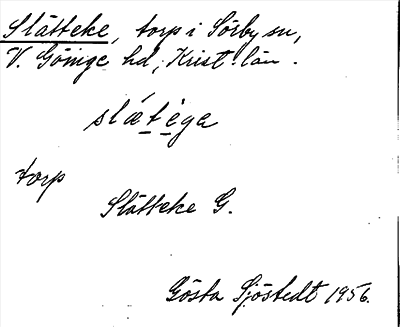 Slätteke, torp i Sörby sn,
V. Göinge hd, Krist. län.
slǽtéga
torp
Slätteke G.
Gösta Sjöstedt 1956.